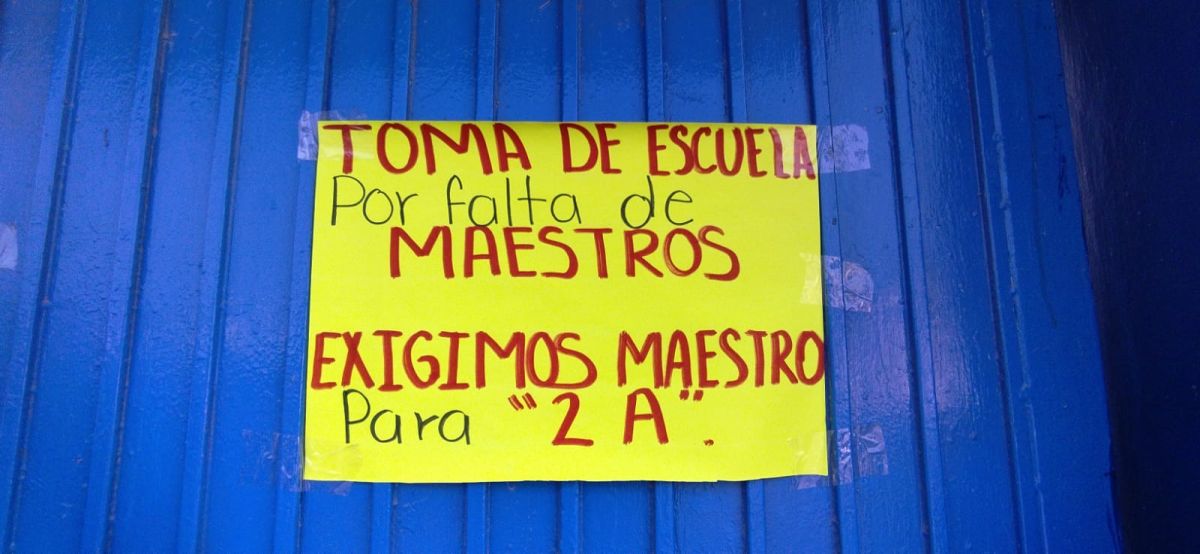 TOMA DE ESCUELA
Por falta de
MAESTROS
EXIGIMOS MAESTRO
Para "2 A".